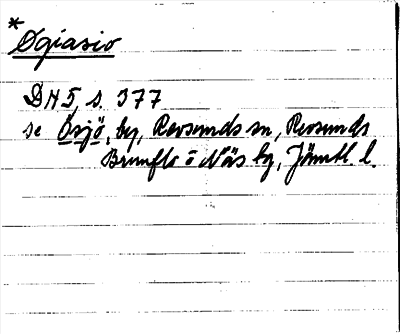 *
Øgiasio
DN 5, s. 377
se Ösjö, by, Revsunds sn, Revsunds
Brunflo o Näs tg, Jämtl. l.